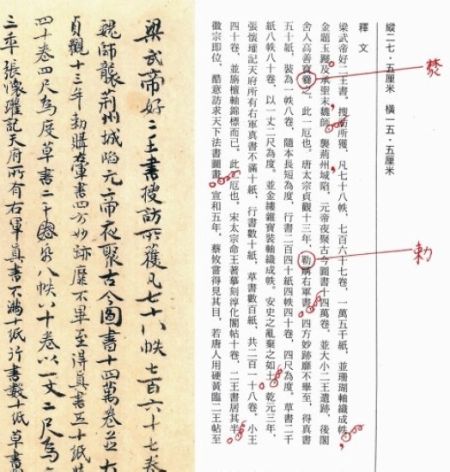 縱二七·五厘米 橫一五·五厘米
釋文
梁武帝好二王書,搜訪所獲,凡七十八帙,七百六十七卷,一萬五千紙,並珊瑚軸織成帙,
金題玉躞及承聖末,魏師襲荊州城陷,元帝夜聚古今圖書十四萬卷,並大小二王遺跡,後閣
舍人高善寶之。此一厄也。唐太宗貞觀十三年,勑購右軍書,四方妙跡靡不畢至,得真書
五十紙,裝為一帙八卷,隨本長短為度,行書二百四十紙四帙四十卷,四尺為度。草書二千
紙八帙八十卷,以一丈二尺為度。並金縷雜寶裝軸織成帙。安史之亂棄之如土,乾元三年,
張懷瓘記天府所有右軍真書不滿十紙,行書數十紙,草書數百紙,共二百一十八卷,小王
四十卷,並旃檀軸錦標而已。此一厄也。宋太宗命王著摹刻淳化閣帖十卷,二王書居其半
徽宗即位,酷意訪求天下法書圖畫,宣和五年,蔡攸嘗得見其目,若唐人用硬黃臨二王帖至
爇
勅
梁武帝好二王書搜訪所獲凡七十八帙七百六十七卷
魏師襲荊州城陷元帝夜聚古今圖書十四萬卷並大
貞觀十三年勅購右軍書四方妙跡靡不畢至得真書五十紙
四十卷四尺為度草書二千紙八帙八十卷以一丈二尺為
三年張懷瓘記天府所有右軍真書不滿十紙行書數十紙草書